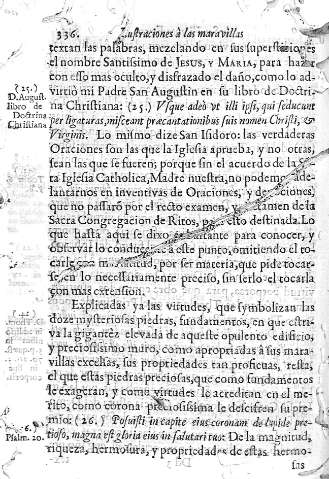 336. Ilustraciones à las maravillas
textan las palabras, mezclando en sus supersticiones
el nombre Santissimo de JESUS, y MARIA, para hazer
con esso mas oculto, y disfrazado el daño, como lo ad-
virtiò mi Padre San Augustin en su libro de Doctri-
na Christiana: (25.) Vsque adeò vt illi ipsi, qui seducunt
per ligaturas, misceant præcantationibus suis nomen Christi, &
Virginis. Lo mismo dize San Isidoro: las verdaderas
Oraciones son las que la Iglesia aprueba, y no otras,
sean las que se fueren; porque sin el acuerdo de la S
ta Iglesia Catholica, Madre nuestra, no podemos ade-
lantarnos en inventivas de Oraciones, y
que no passarõ por el recto examen, y
Sacra Congregacion de Ritos, esto destinada. Lo
que hasta aqui se dixo es para conocer, y
observar lo a este punto, omitiendo el to-
por ser materia, que pide tocar-
se en lo necessariamente preciso, sin serlo el tocarla
con mas extension.
Explicadas ya las virtudes, que symbolizan las
doze mysteriosas piedras, fundamentos, en que estri-
va la gigantèz elevada de aqueste opulento edificio,
y preciosissimo muro, como apropriadas à sus mara-
villas excelsas, sus propriedades tan proficuas, resta,
el que estas piedras preciosas, que como fundamentos
le exageran, y como virtudes le acreditan en el me-
rito, como corona preciosissima le descifren su pre-
mio: (26.) Posuisti in capite eius coronam de lapide pre-
tioso, magna est gloria eius in salutari tuo: De la magnitud,
riqueza, hermosura, y propriedades de estas hermo-
sas
(25.)
D. August.
libro de
Doctrina
Christiana
26.
Psalm. 20.